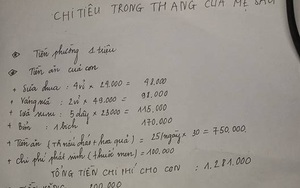 CHI TIÊU TRONG THÁNG CỦA MẸ SÂU
* Tiền phòng 1 triệu
* Tiền ăn của con
+ Sữa chua : 4 vỉ × 29.000 =
+ Váng sữa : 2 vỉ × 49.000 = 98.000
+ Sữa : 5 dây × 23.000 = 115.000
+ Bỉm : 1 bịch 170.000
+ Tiền ăn (thịt nấu cháo + hoa quả) = 25/ngày × 30 = 750.000
+ Chi phí phát sinh (thuốc men) = 100.000
TỔNG TIỀN CHI PHÍ CHO CON : 1.281.000